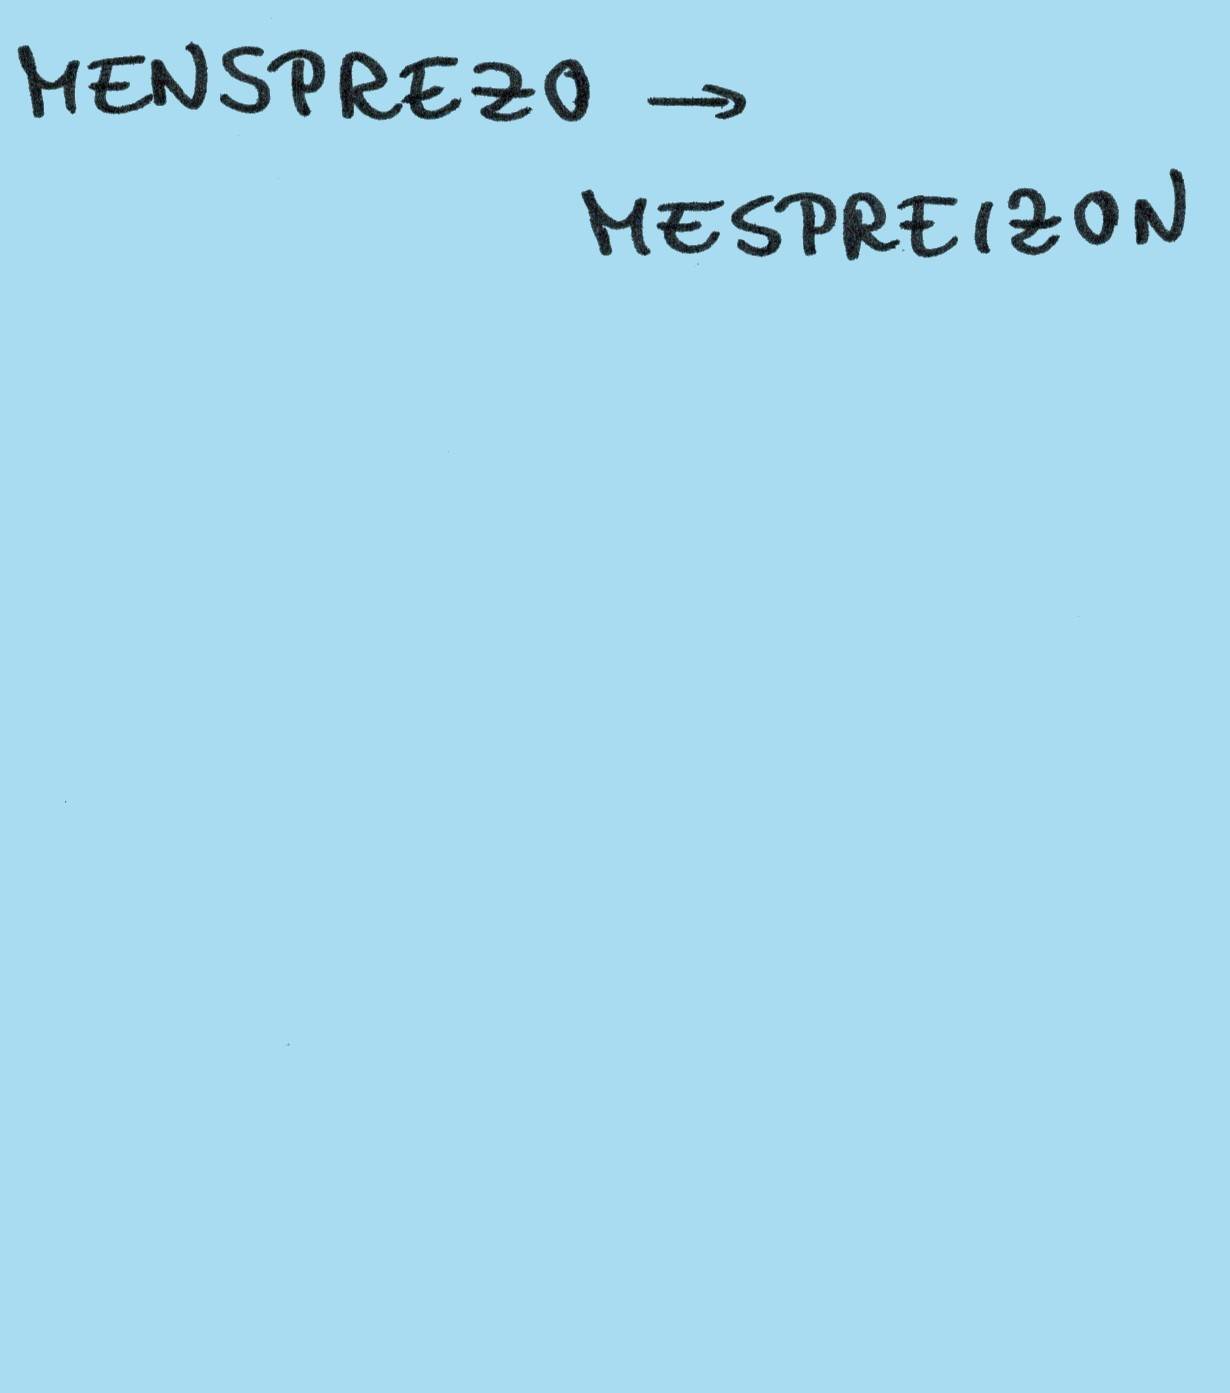 MENSPREZO →
MESPREIZON